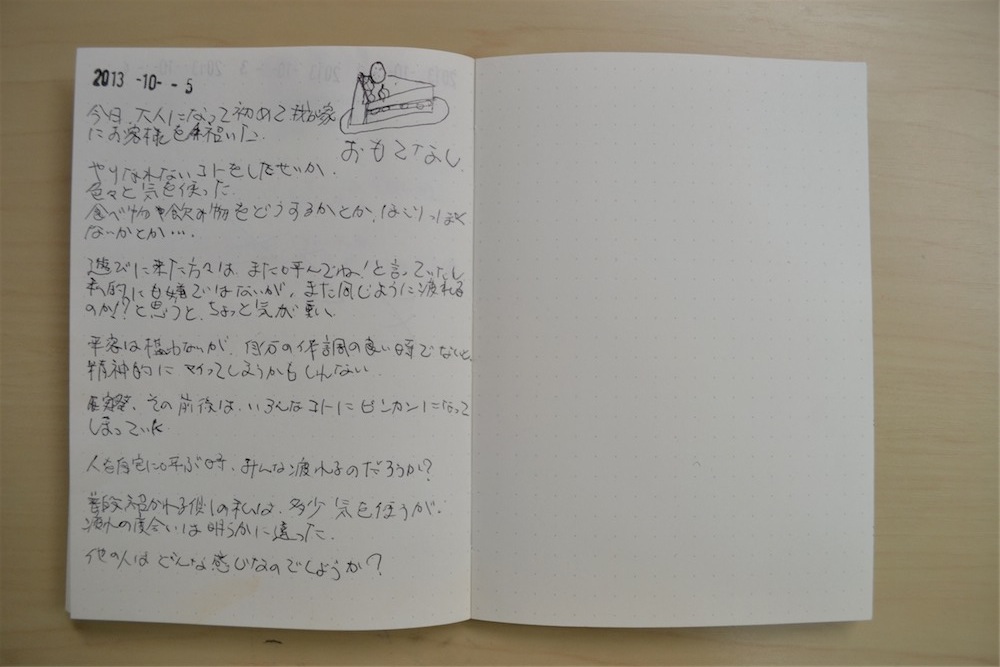 2013 -10- -5
今日、大人になって初めて我が家
にお客様を招いた。
おもてなし
やりなれないコトをしたせいか、
色々と気を使った。
食べ物や飲み物をどうするかとか、ほこりっぽく
ないかとか…。
遊びに来た方々は、また呼んでね！と言っていたし
私的にも嫌ではないが、また同じように疲れる
のか!?と思うと、ちょっと気が重い。
来客は構わないが、自分の体調の良い時でないと、
精神的にマイってしまうかもしれない。
実際、その前後は、いろんなコトにビンカンになって
しまっていた。
人を自宅に呼ぶ時、みんな疲れるのだろうか？
普段招かれる側の私は、多少気を使うが、
疲れの度合いは明らかに違った。
他の人はどんな感じなのでしょうか？